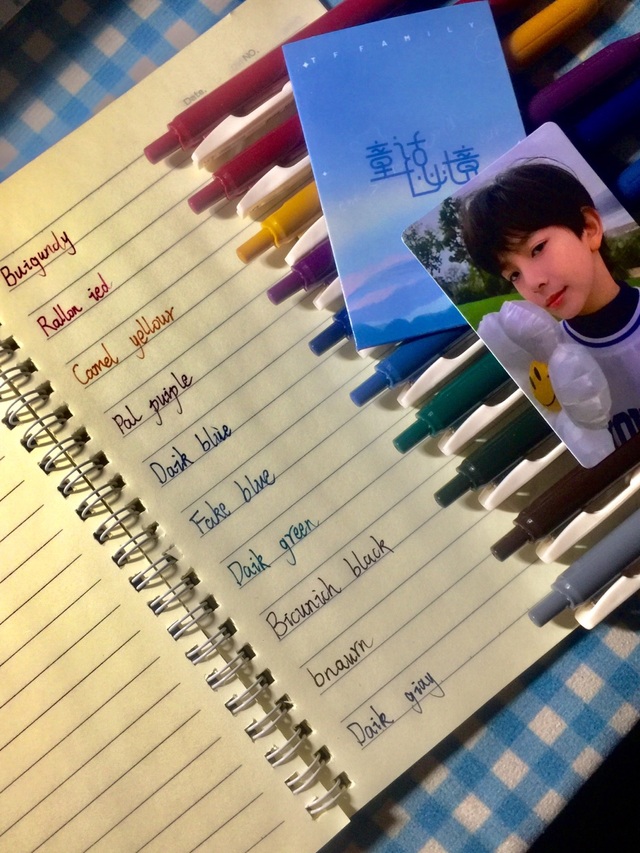 Date.
NO.
Burgundy
Rallon red
Camel yellow
Pal purple
Dark blue
Fake blue
Dark green
Brounich black
bnawrn
Dark gray
TF FAMILY
童话 境